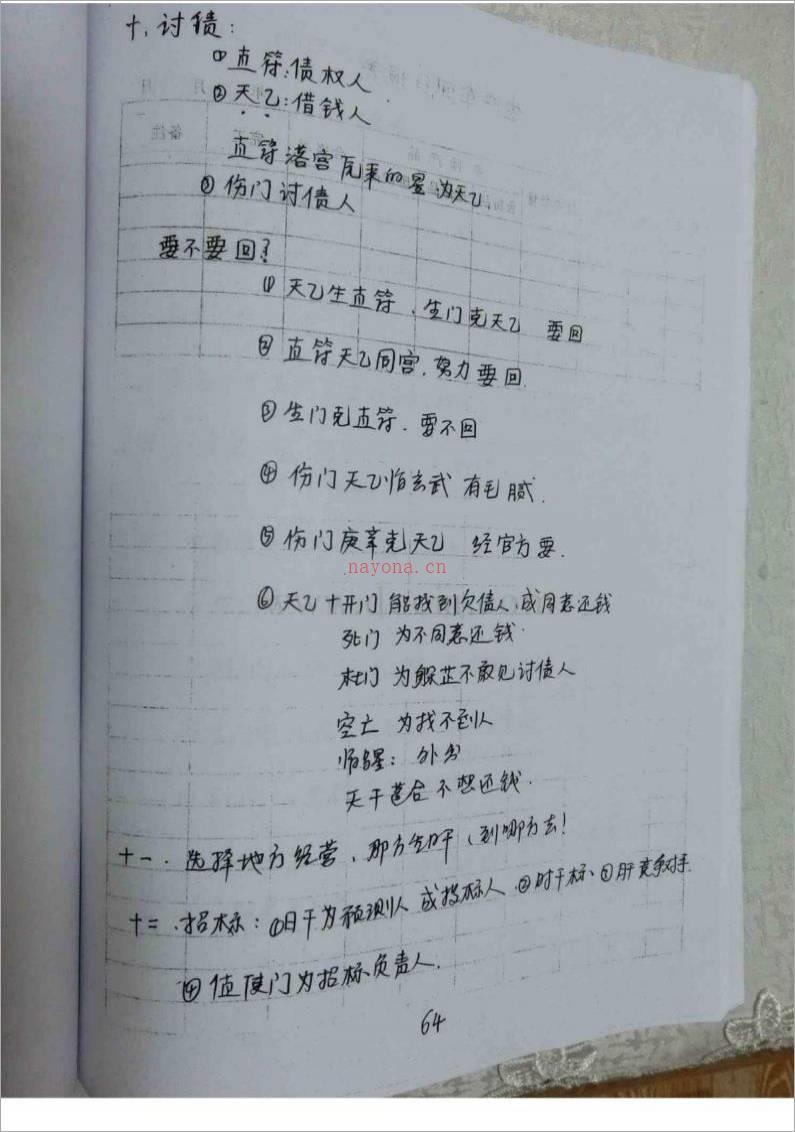 十.讨债:
①直符:债权人
②天乙:借钱人
直符落宫原来的星为天乙.
③伤门讨债人
要不要回?
①天乙生直符、生门克天乙 要回
②直符天乙同宫.努力要回.
③生门克直符.要不回
④伤门天乙临玄武 有毛腻.
⑤伤门庚辛克天乙 经官方要.
nayona.cn
⑥天乙十开门 能找到欠债人,或同意还钱
死门 为不同意还钱
杜门 为躲茫不敢见讨债人
空亡 为找不到人
马星: 外出
天干逢合 不想还钱.
十一.选择地方经营、那方生时干(到哪方去!
十二.招标:①日干为预测人或投标人.②时干标、③月干竞争对手.
④值使门为招标负责人.
64